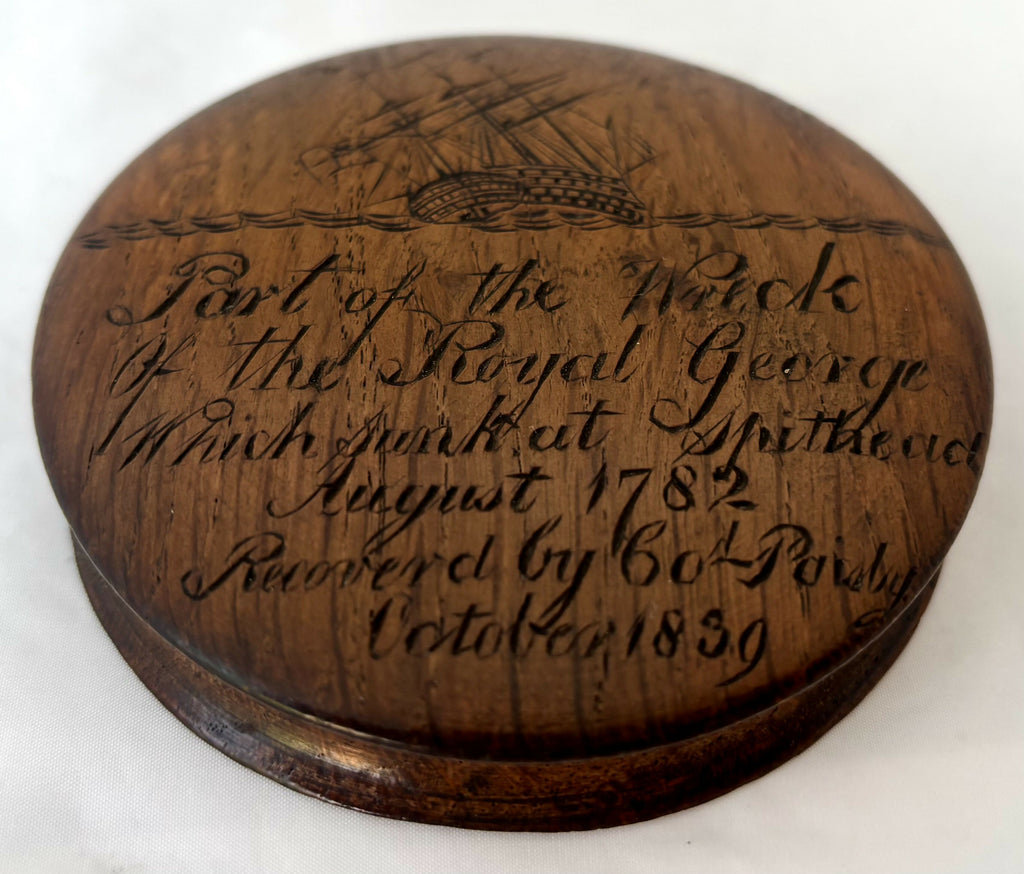 Part of the Wreck
Of the Royal George
Which sunk at Spithead
August 1782
Recoverd by Col Paisby
October 1839